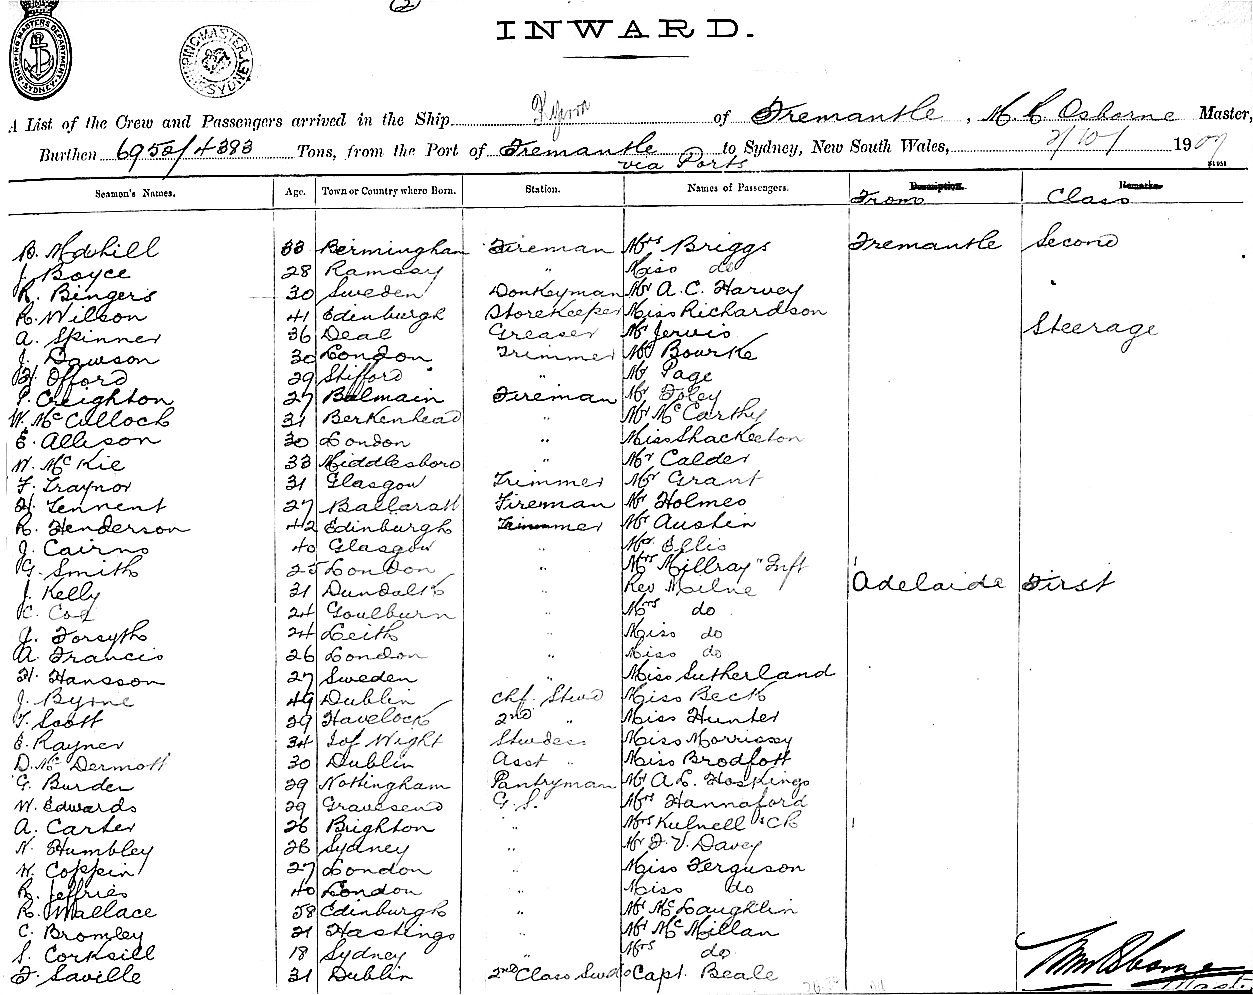 (2)
INWARD.
SHIPPING MASTERS DEPARTMENT SYDNEY
SHIPPING MASTER SYDNEY
A List of the Crew and Passengers arrived in the Ship of Fremantle, Osborne Master,
Burthen 6952/4383 Tons, from the Port of Fremantle to Sydney, New South Wales, 2/10/ 1907
via Ports
Seamen's Names. Age. Town or Country where Born. Station. Names of Passengers. Description. Remarks.
From Class
B. 33 Bermingham Fireman Mrs Briggs Fremantle Second
J. Boyce 28 Ramsay " Miss do
R. Bingers 30 Sweden Donkeyman Mr A. C. Harvey
R. Wilson 41 Edinburgh Storekeeper Miss Richardson
A. Skinner 36 Deal Greaser Mr Jervis Steerage
J. Dawson 30 London Trimmer Bourke
H. Offord 29 Stifford " Mr Page
P. Creighton 27 Balmain Fireman Mr Foley
W. McCullock 31 Berkenhead " Mr McCarthy
E. Allison 30 London " Miss Shackleton
W. McKie 33 Middlesboro " Mr Calder
F. Traynor 31 Glasgow Trimmer Mr Grant
H. Tennent 27 Ballarat Fireman Mr Holmes
R. Henderson 42 Edinburgh Trimmer Mr Austin
J. Cairns 40 Glasgow " Ellis
G. Smith 25 London " Mrs Millray " Inft
J. Kelly 31 Dundalk " Rev Milne Adelaide First
C. Cox 24 Goulburn " Mrs do
J. Forsyth 24 Leith " Miss do
A. Francis 26 London " Miss do
H. Hansson 27 Sweden " Miss Sutherland
J. Byrne 49 Dublin Chf. Stwd Miss Beck
T. Scott 39 Havelock 2nd " Miss Hunter
E. Rayner 34 I of Wight Stwdess Miss Morrissey
D. McDermott 30 Dublin Asst " Miss
G. Burder 29 Nottingham Pantryman Mr A. L. Hoskings
W. Edwards 29 Gravesend G. S. Hannaford
A. Carter 26 Brighton " Mrs & Ch
N. Humbley 28 Sydney " Mr F. V. Davey
W. Coppin 27 London " Miss Ferguson
R. Jeffries 40 London " Miss do
R. Wallace 58 Edinburgh " Mr McLaughlin
C. Bromley 21 Hastings " Mr McMillan
S. Corksill 18 Sydney " Mrs do
F. Saville 31 Dublin 2nd Class Swd Capt. Beale
Osborne